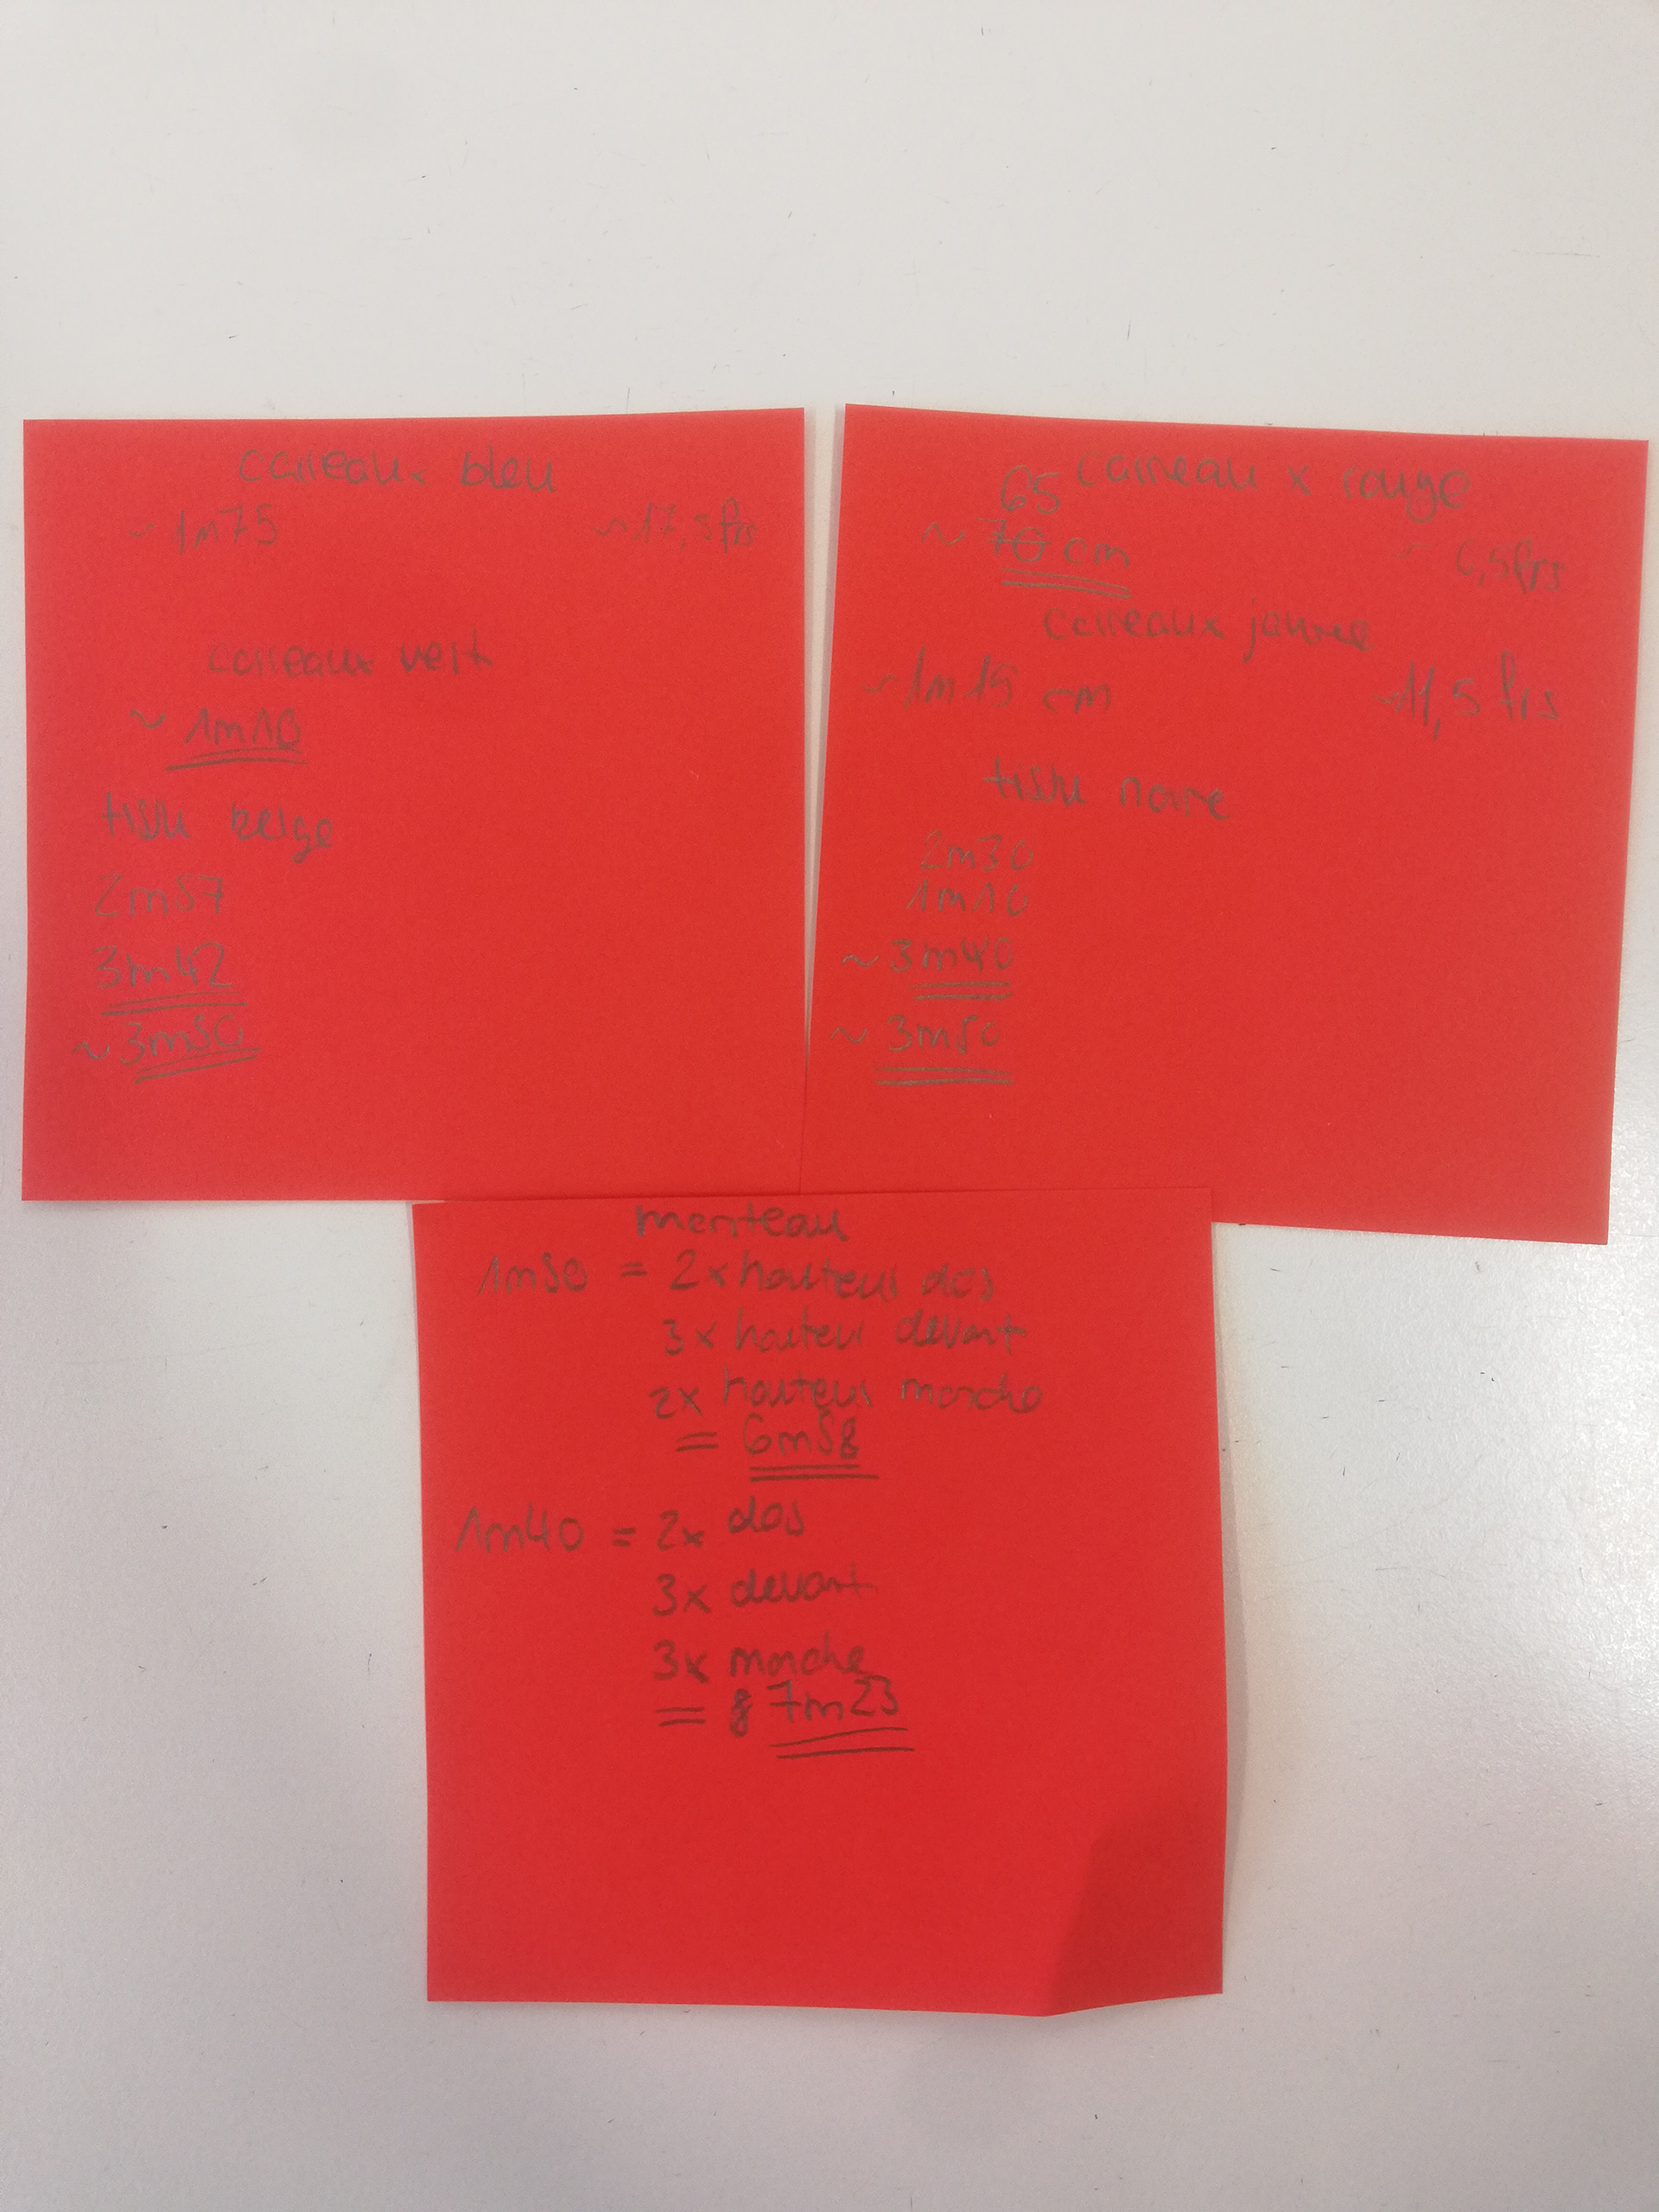 carreaux bleu
~ 1m75 ~17,5frs
carreaux vert
~ 1m10
tissu beige
2m57
3m42
~ 3m50
65 carreaux rouge
~ 70 cm ~ 6,5frs
carreaux jaune
~ 1m15 cm ~11,5 frs
tissu noire
2m30
1m10
~ 3m40
~ 3m50
manteau
1m50 = 2x hauteur dos
3x hauteur devant
2x hauteur manche
= 6m58
1m40 = 2x dos
3x devant
3x manche
= 8 7m23